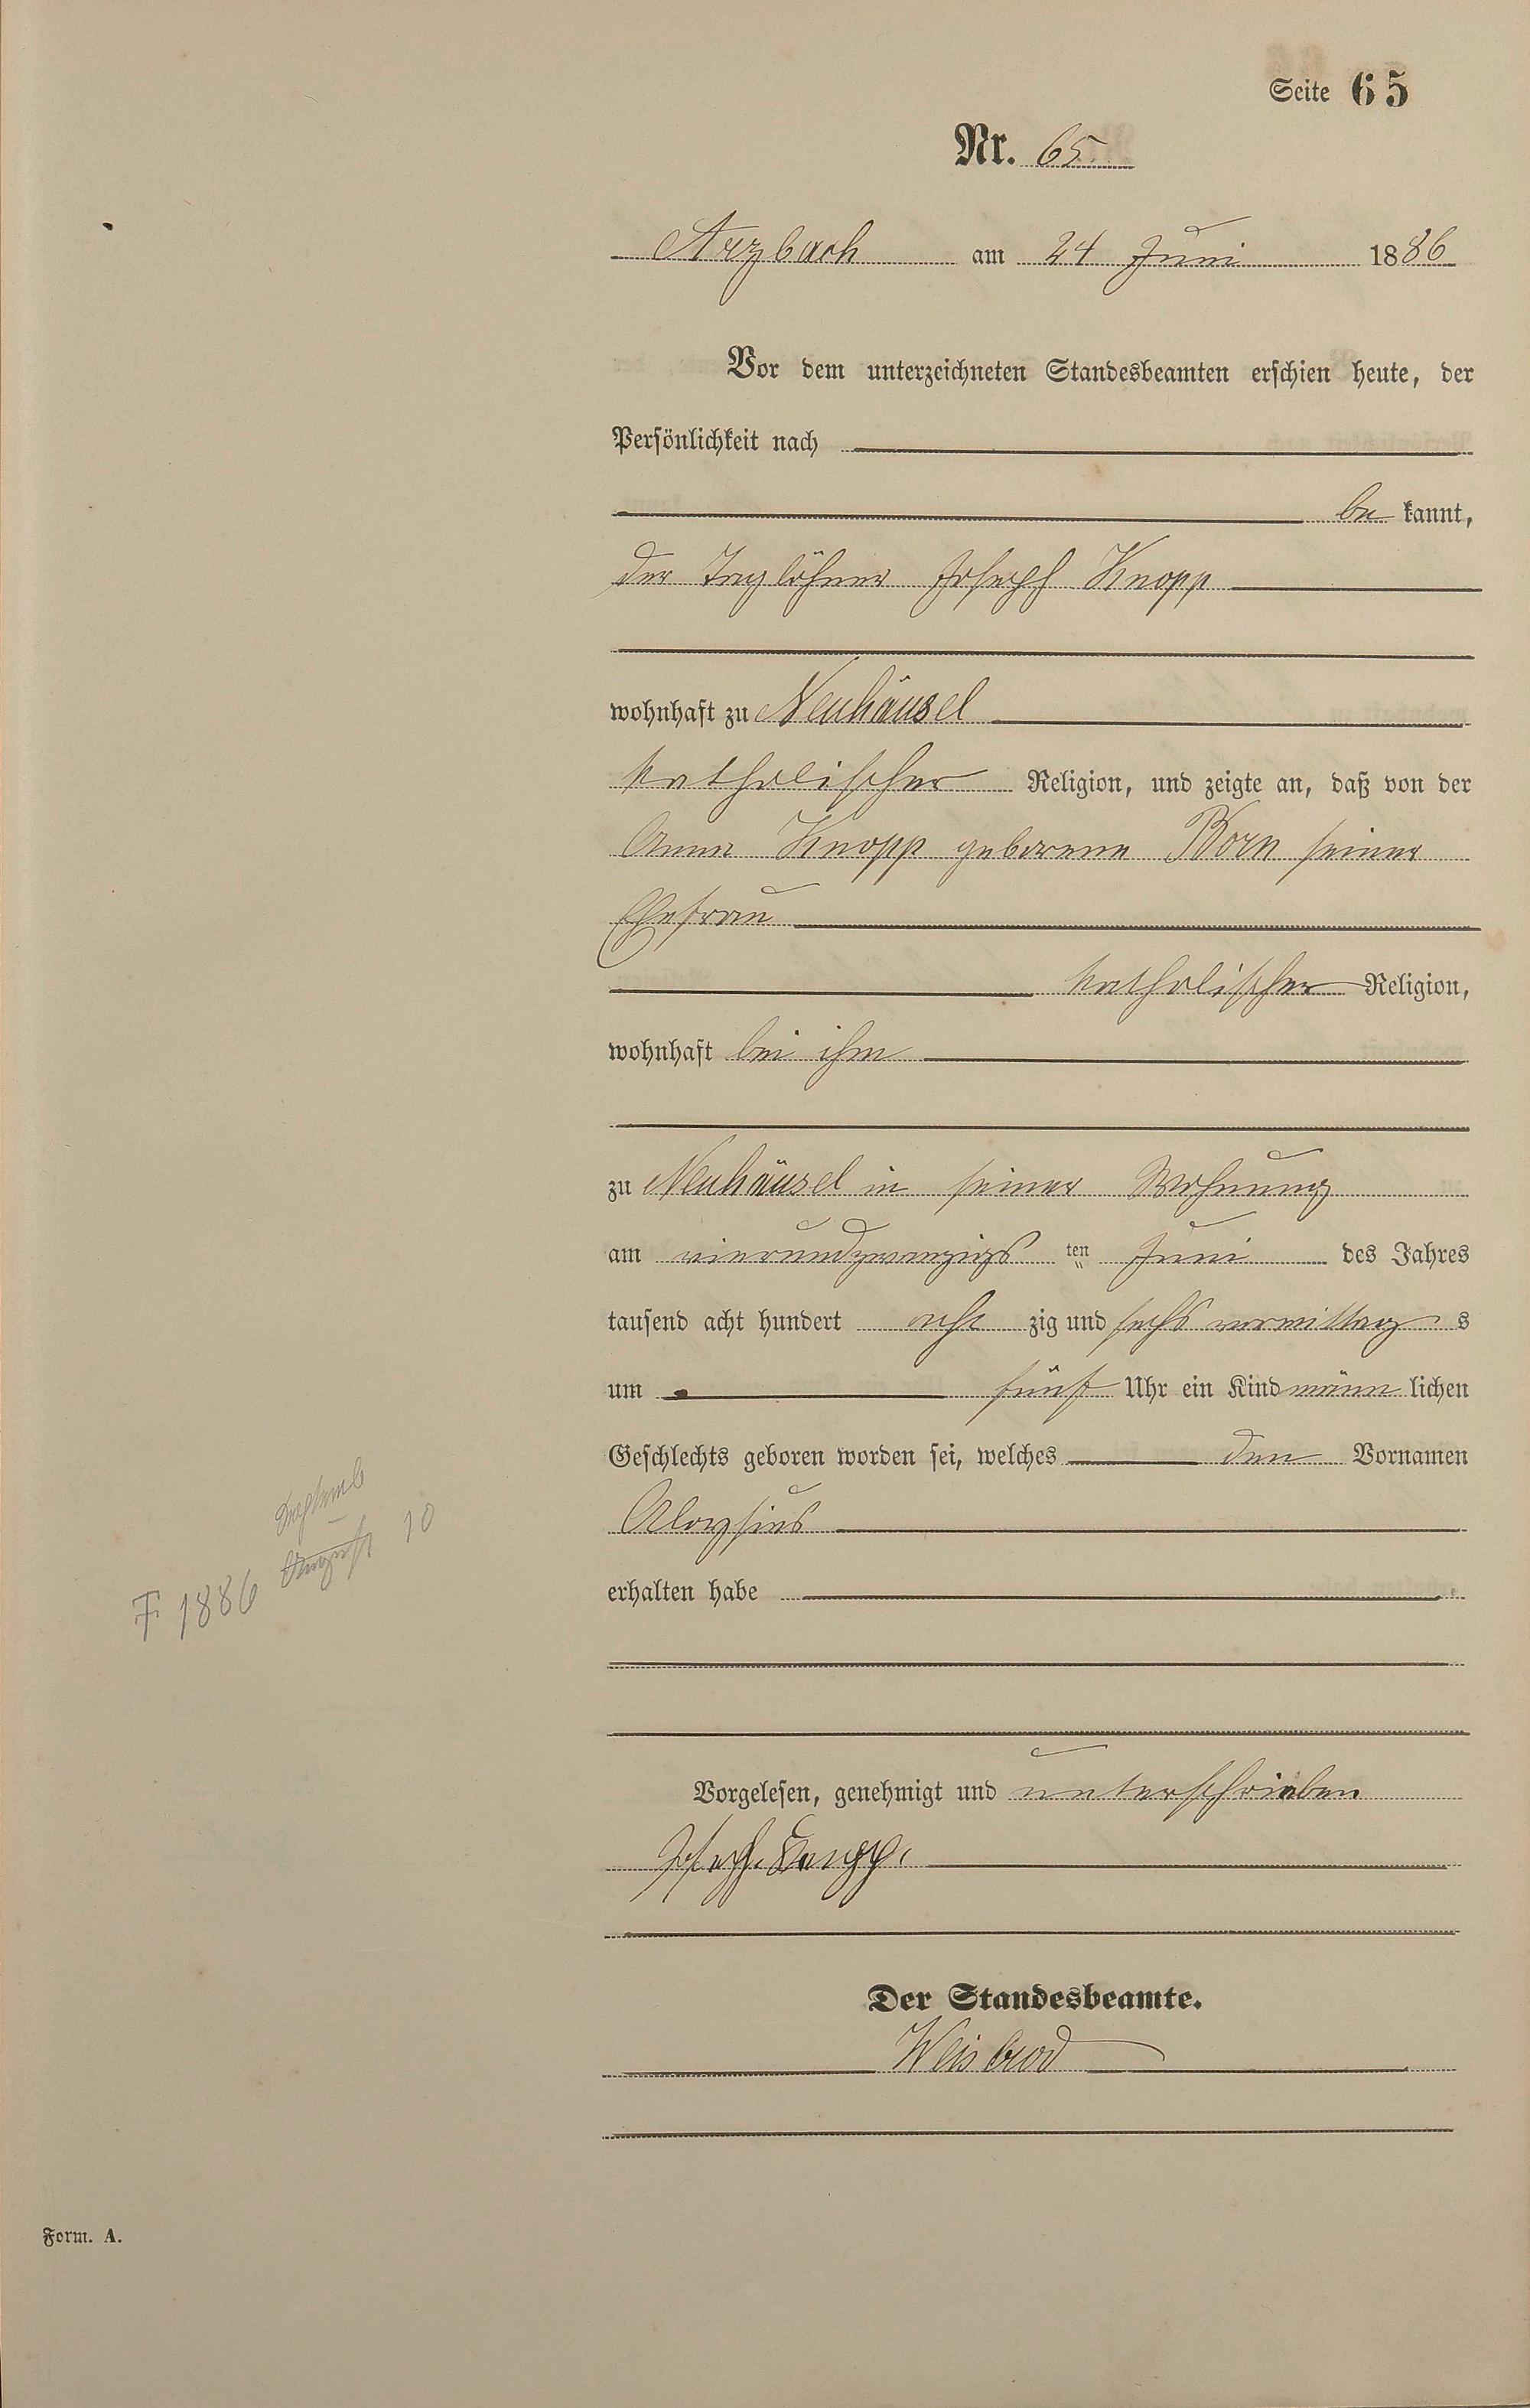 Seite 65
Nr. 65
Arzbach am 24 Juni 1886
Vor dem unterzeichneten Standesbeamten erschien heute, der
Persönlichkeit nach
be kannt,
der Taglöhner Joseph Knopp
wohnhaft zu Neuhäusel
katholischer Religion, und zeigte an, daß von der
Anna Knopp geborene Born seiner
Ehefrau
katholischer Religion,
wohnhaft bei ihm
zu Neuhäusel in seiner Wohnung
am vierundzwanzigs ten Juni des Jahres
tausend acht hundert acht zig und sechs vormittag s
um fünf Uhr ein Kind männ lichen
Geschlechts geboren worden sei, welches den Vornamen
Aloysius
erhalten habe
F 1886 August 10
Vorgelesen, genehmigt und unterschrieben
Joseph Knopp.
Der Standesbeamte.
Weisbrod
Form. A.